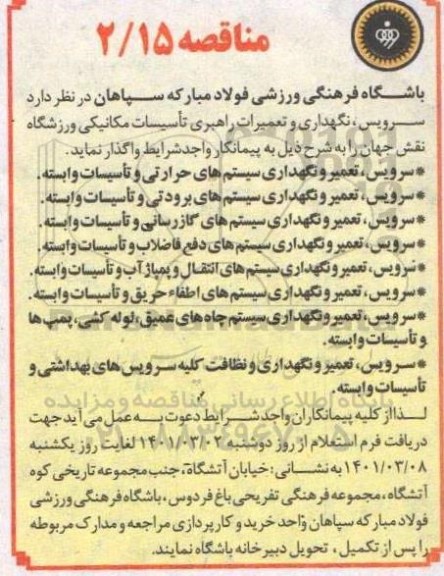 مناقصه ۲/۱۵
باشگاه فرهنگی ورزشی فولاد مبارکه سپاهان در نظر دارد
سرویس، نگهداری و تعمیرات راهبری تأسیسات مکانیکی ورزشگاه
نقش جهان را به شرح ذیل به پیمانکار واجد شرایط واگذار نماید.
*سرویس، تعمیر و نگهداری سیستم های حرارتی و تأسیسات وابسته.
*سرویس، تعمیر و نگهداری سیستم های برودتی و تأسیسات وابسته.
*سرویس، تعمیر و نگهداری سیستم های گازرسانی و تأسیسات وابسته.
*سرویس، تعمیر و نگهداری سیستم های دفع فاضلاب و تأسیسات وابسته.
*سرویس، تعمیر و نگهداری سیستم های انتقال و پمپاژ آب و تأسیسات وابسته.
*سرویس، تعمیر و نگهداری سیستم های اطفاء حریق و تأسیسات وابسته.
*سرویس، تعمیر و نگهداری سیستم چاه های عمیق، لوله کشی، پمپ ها
و تأسیسات وابسته.
*سرویس، تعمیر و نگهداری و نظافت کلیه سرویس های بهداشتی و
تأسیسات وابسته.
لذا از کلیه پیمانکاران واجد شرایط دعوت به عمل می آید جهت
دریافت فرم استعلام از روز دوشنبه ۱۴۰۱/۰۳/۰۲ لغایت روز یکشنبه
۱۴۰۱/۰۳/۰۸ به نشانی: خیابان آتشگاه، جنب مجموعه تاریخی کوه
آتشگاه، مجموعه فرهنگی تفریحی باغ فردوس، باشگاه فرهنگی ورزشی
فولاد مبارکه سپاهان واحد خرید و کارپردازی مراجعه و مدارک مربوطه
را پس از تکمیل، تحویل دبیرخانه باشگاه نمایند.